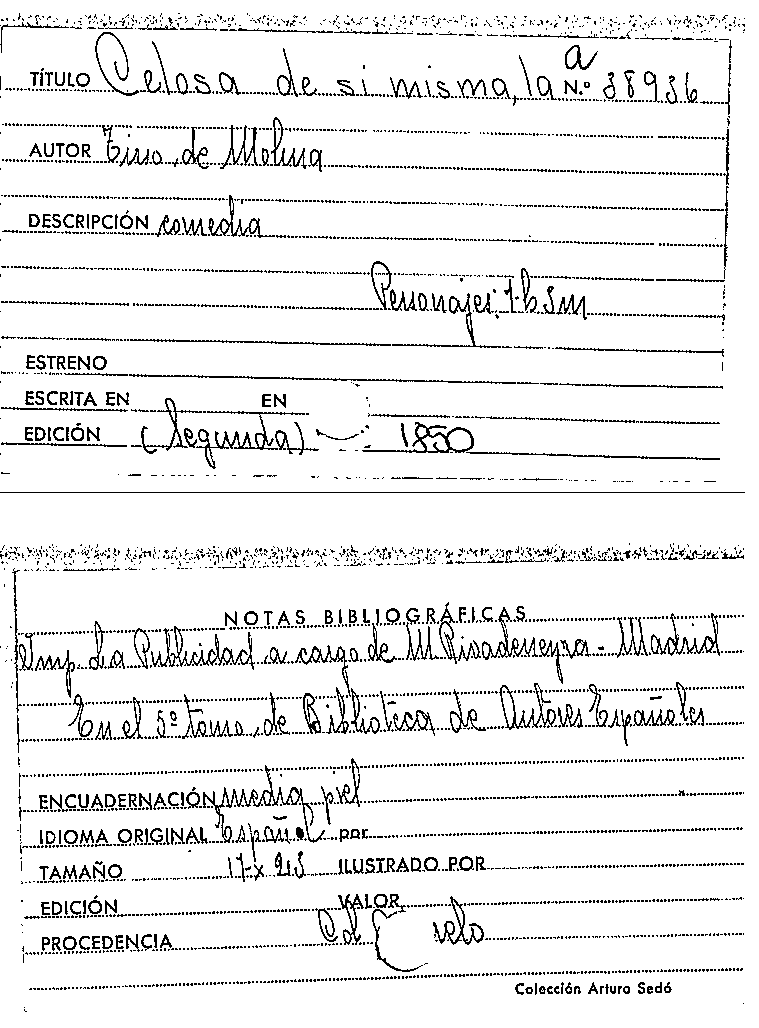 a
TÍTULO Celosa de si misma, la N.º 38936
AUTOR Tirso de Molina
DESCRIPCIÓN comedia
Personajes: 7-h 5m
ESTRENO
ESCRITA EN EN
EDICIÓN (Segunda) 1850
NOTAS BIBLIOGRÁFICAS
Imp. La Publicidad a cargo de M Rivadeneyra - Madrid
En el 5º tomo, de Biblioteca de Autores Españoles
ENCUADERNACIÓN media piel
IDIOMA ORIGINAL Español por
TAMAÑO 17 x 245 ILUSTRADO POR
EDICIÓN VALOR
PROCEDENCIA Col
Colección Arturo Sedó